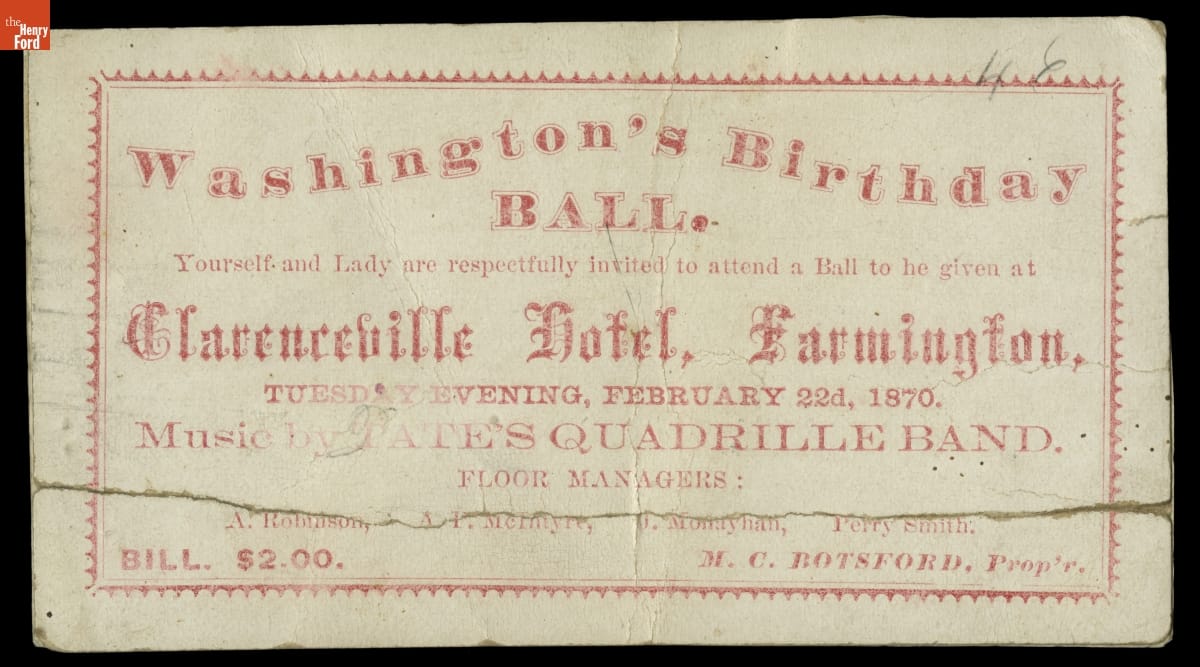 the
Henry
Ford
Washington's Birthday
BALL.
Yourself and Lady are respectfully invited to attend a Ball to he given at
Clarenceville Hotel, Farmington,
TUESDAY EVENING, FEBRUARY 22d, 1870.
Music by TATE'S QUADRILLE BAND.
FLOOR MANAGERS:
A. Robinson, McIntyre, Monayhan, Perry Smith.
BILL. $2.00. M. C. BOTSFORD, Prop'r.